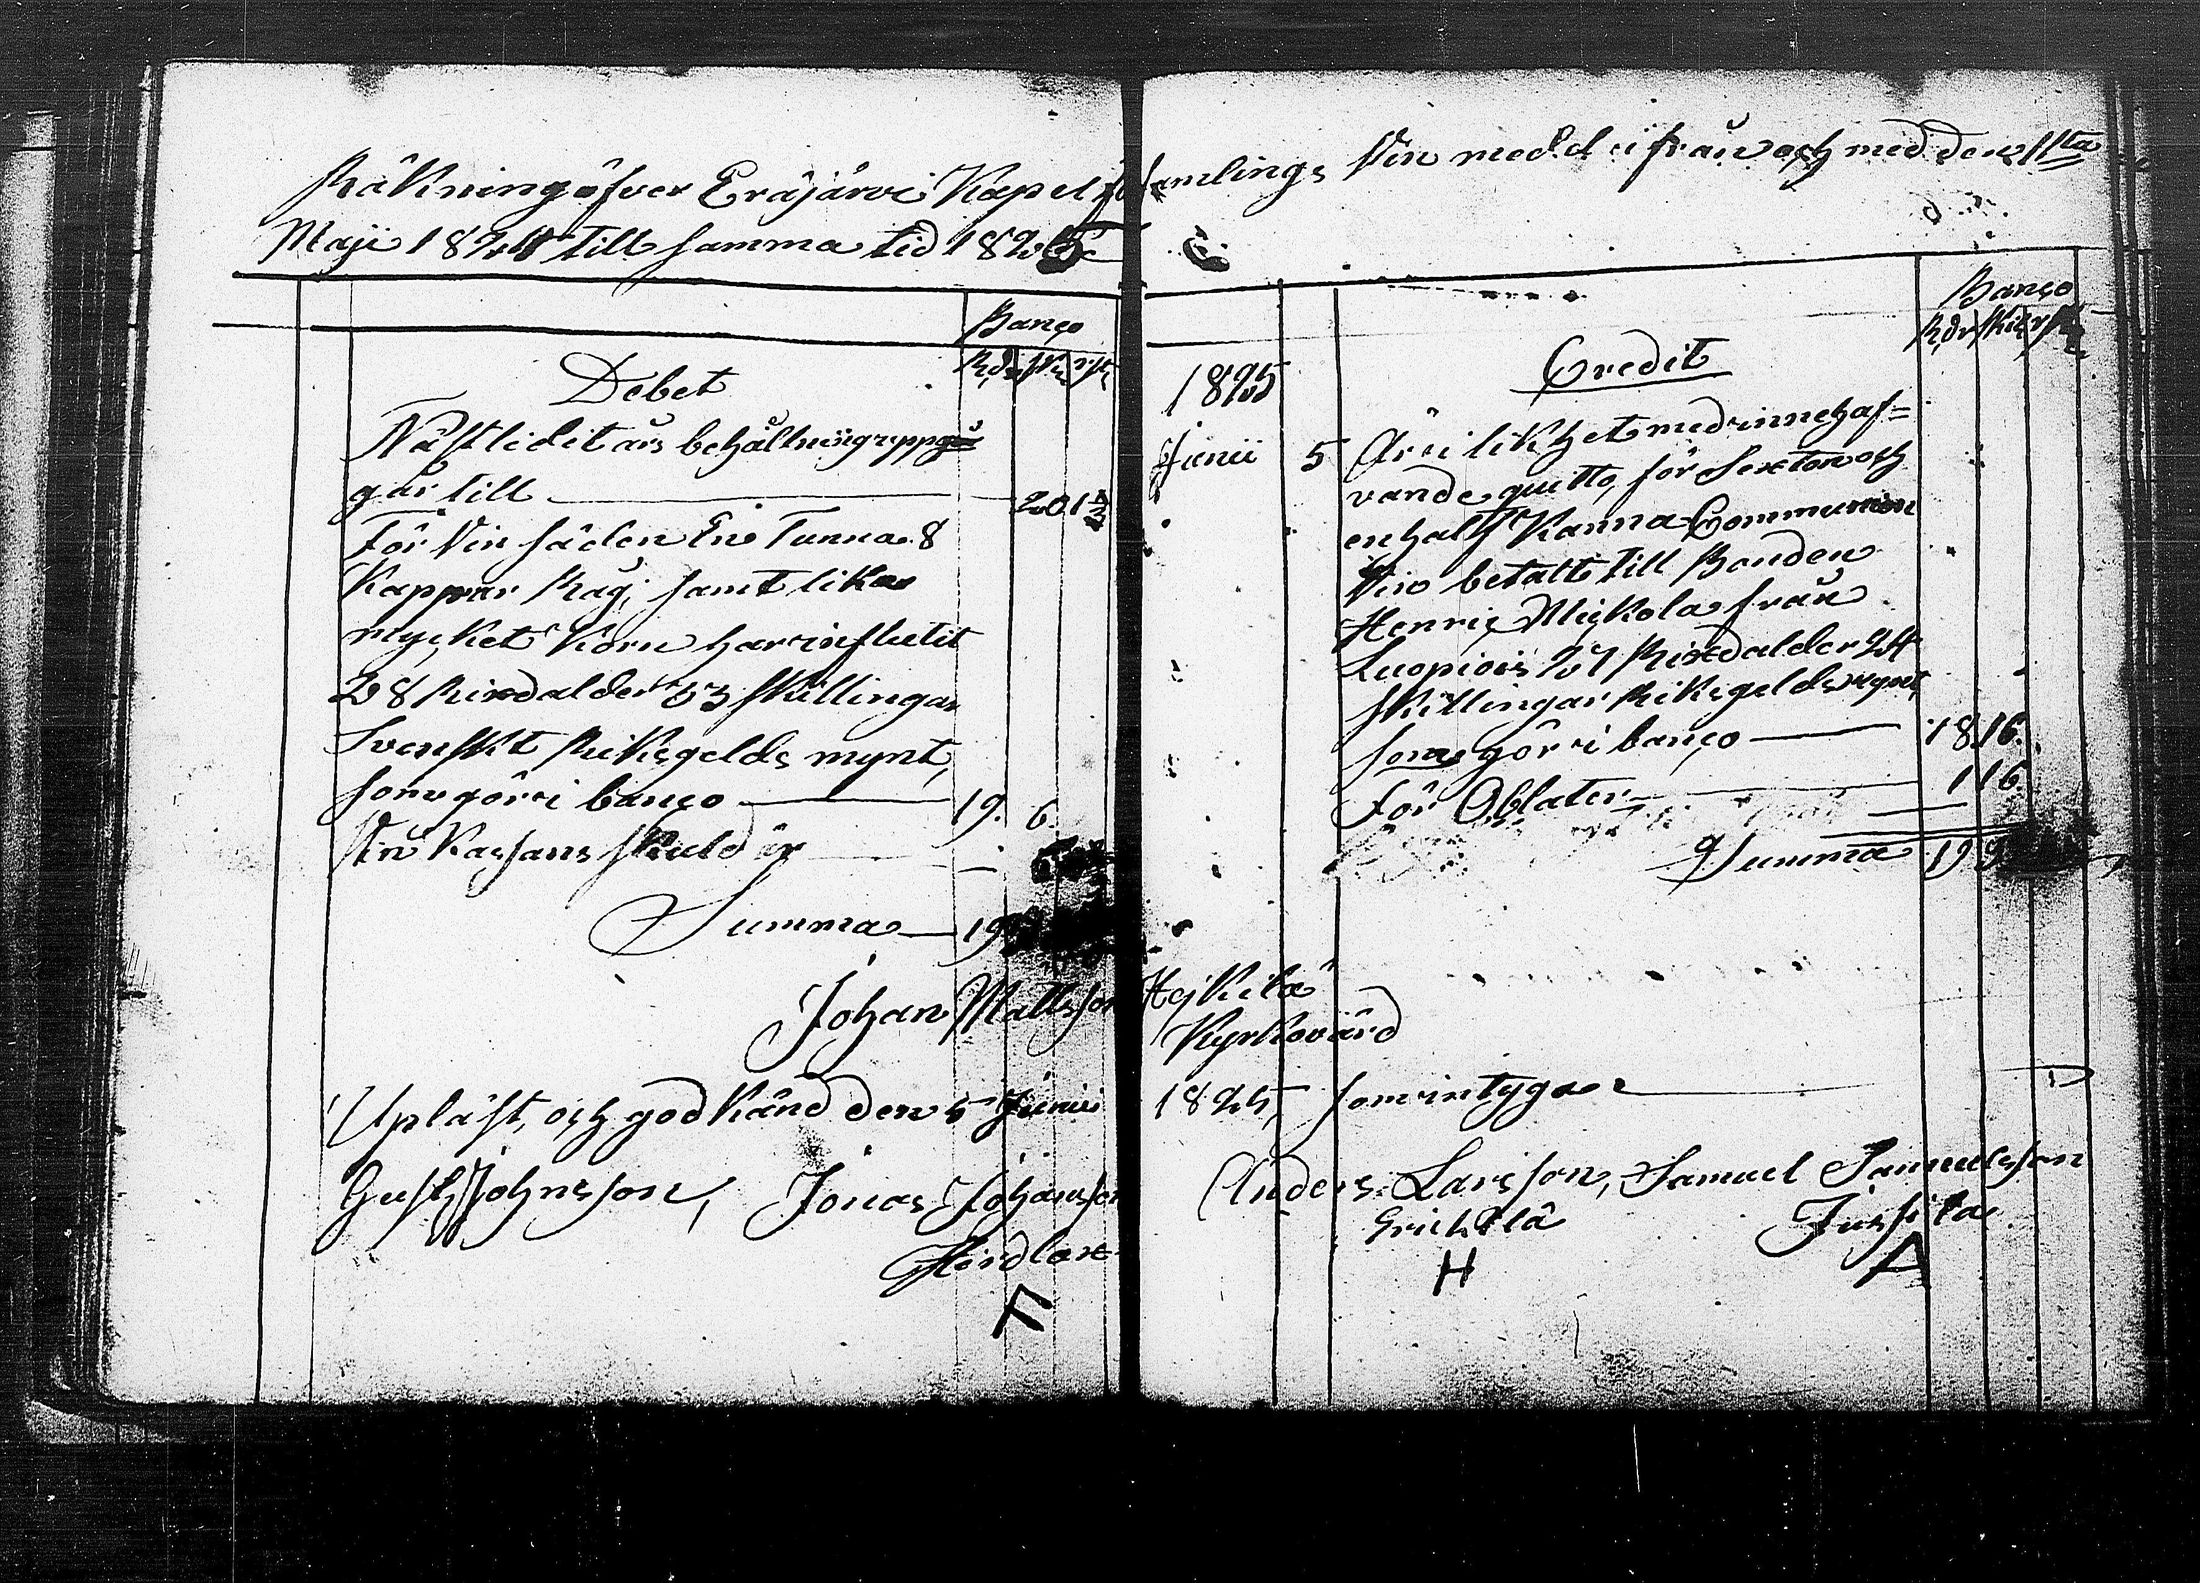 Räkning öfver Eräjärvi Kapel församlings Vin medel ifrån och med den 1sta
Maji 1824 till samma tid 1825
Banco
Rdr Sk rst
Debet
Nästledit års behållning uppgår
går till 20 1½
För Vin säden En Tunna 8
Kappar Råg, samt lika
mycket Korn har influtit
28 Rixdalder 33 Skillingar
Svenskt Riksgelds mynt,
som gör i banco 19. 6.
Vin Kassans skuld är
Summa 19
Banco
Rdr Skil rst
1825
Credit
Junii 5 År i likhet med innehaf=
vande quitto, för Sexton och
en half Kanna Communion
Vin betalt till Bonden
Henric Mickola från
Luopiois 27 Rixdalder 24
Skillingar Riksgelds mynt,
som gör i banco 18.16.
För Oblater 1 16.
Summa 19
Johan Mattsson Hejkilä
Kyrkovärd
Upläst, och godkänd den 5 Junii 1825, som intygar
Gust Johnsson, Jonas Johansson Anders Larsson, Samuel Samuelsson
Hirdlax Erichilä Jussila
F H A